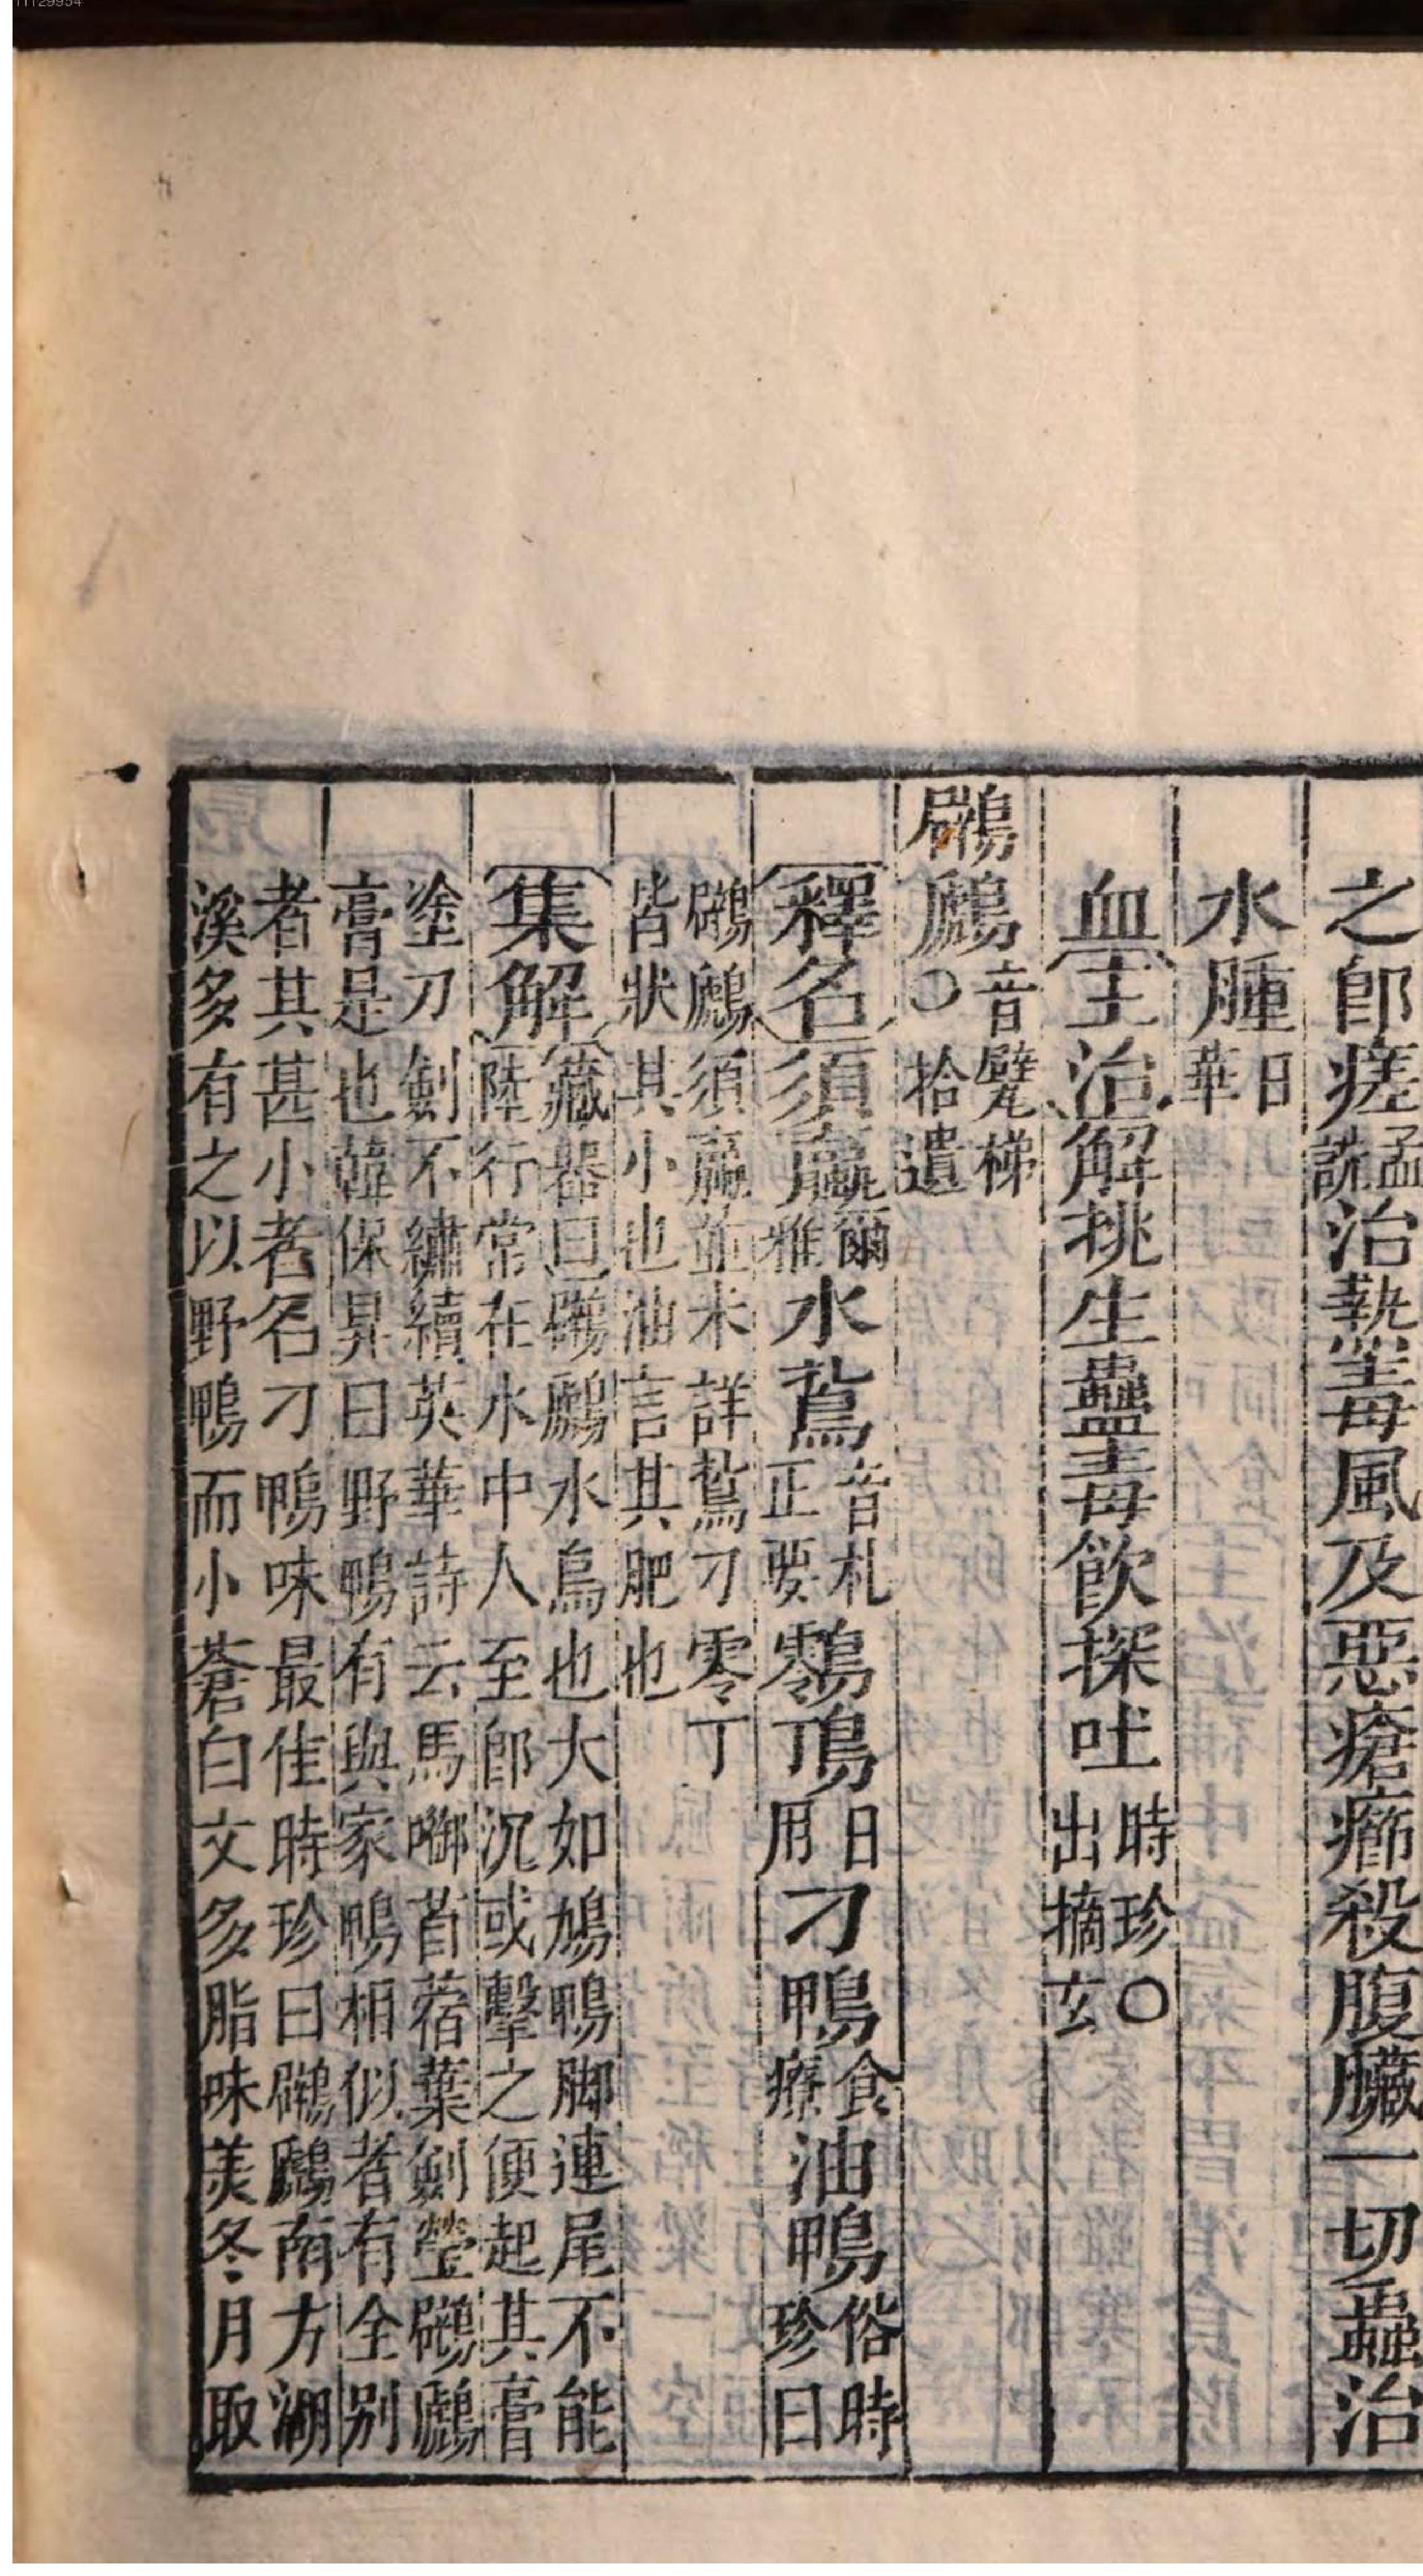 11129954
之卽瘥孟詵治熱毒風及惡瘡癤殺腹臟一切蟲治
水腫日華
血主治解挑生蠱毒飲探吐時珍○出摘玄
鸊鷉音甓梯○拾遺
釋名須鸁爾雅水鴽音札正要鸋鳭日用刁鴨食療油鴨俗時珍曰
鸊鷉須鸁並未詳鴽刁零丁
皆狀其小也油言其肥也
集解藏器曰鸊鷉水鳥也大如鳩鴨脚連尾不能
陸行常在水中人至卽沉或擊之便起其膏
塗刀劍不繡續英華詩云馬啣苜蓿葉劍瑩鸊鷉
膏是也韓保昇曰野鴨有與家鴨相似者有全別
者其甚小者名刁鴨味最佳時珍曰鸊鷉南方湖
溪多有之以野鴨而小蒼白文多脂味美冬月取